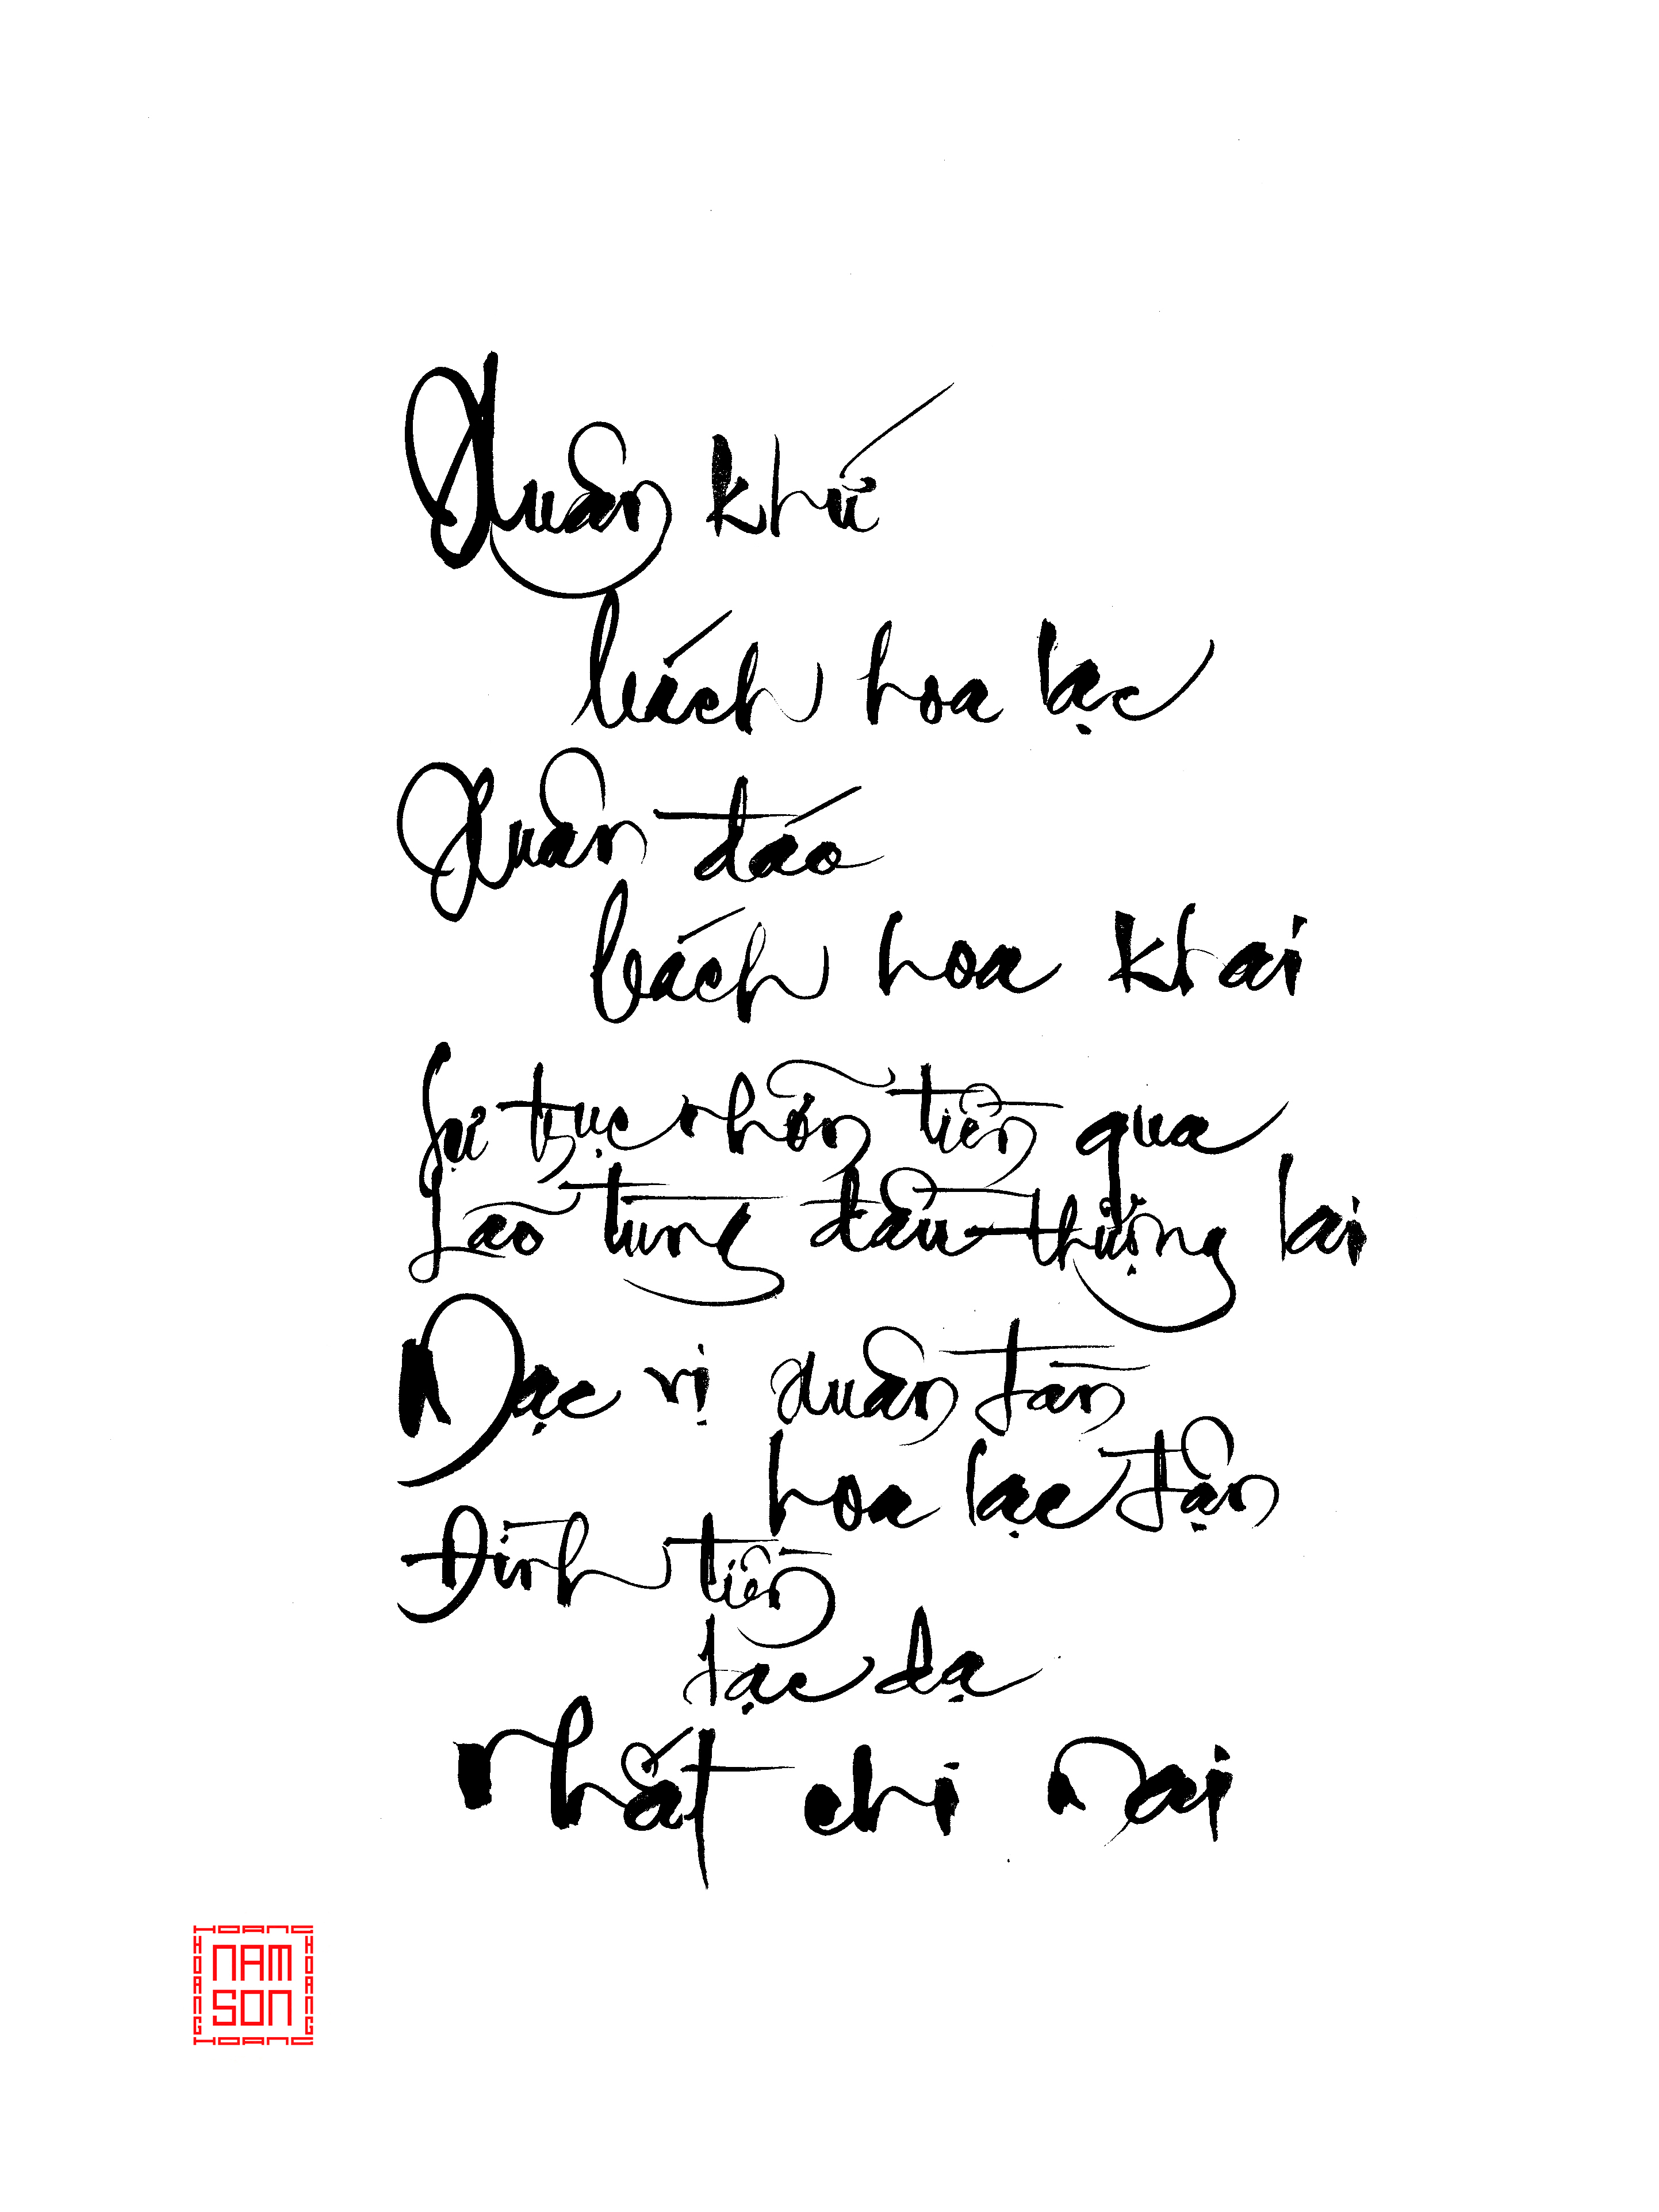 Xuân khứ
bách hoa lạc
Xuân đáo
bách hoa khai
Sự trục nhãn tiền quá
Lão tùng đầu thượng lai
Mạc vị xuân tàn
hoa lạc tận
Đình tiền
tạc dạ
nhất chi mai
HOANG
HOANG
NAM
SON
HOANG
HOANG